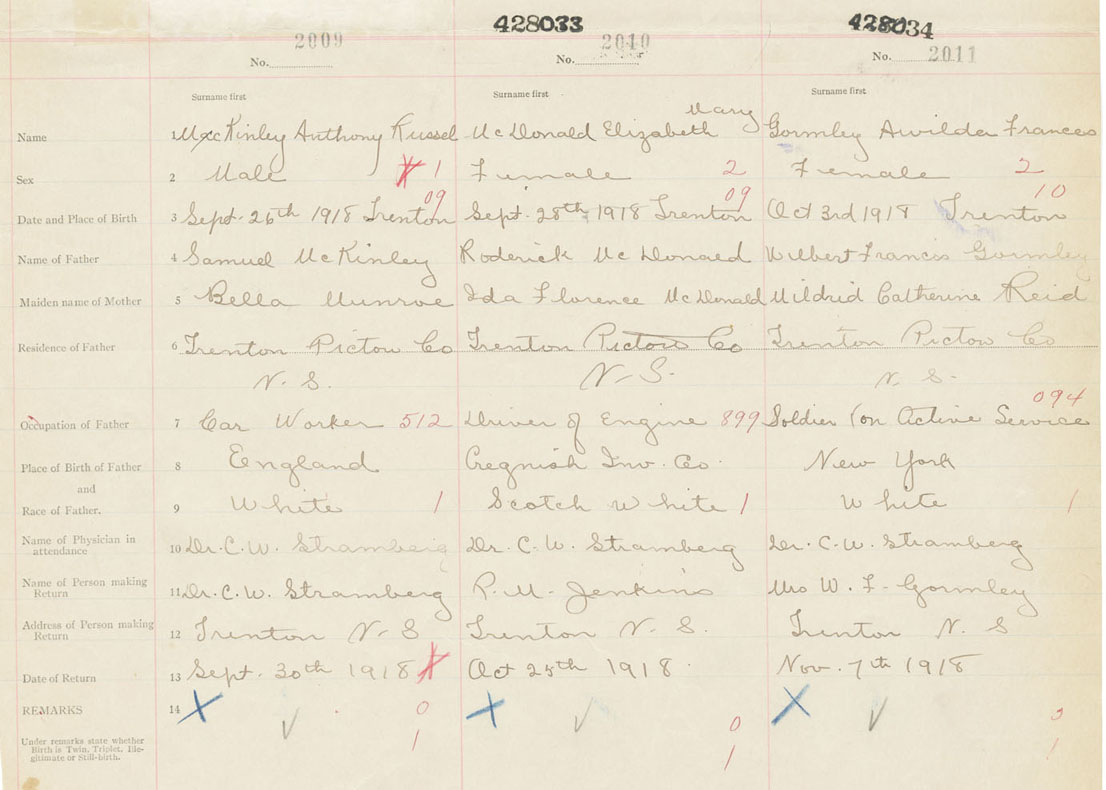 428033 428034
2009 2010 2011
No. No. No.
Surname first Surname first Surname first
Mary
Name MacKinley Anthony Russel McDonald Elizabeth Gormley Awilda Frances
Sex 2 Male 1 Female 2 Female 2
09 09 10
Date and Place of Birth 3 Sept. 26th 1918 Trenton Sept. 28th 1918 Trenton Oct 3rd 1918 Trenton
Name of Father 4 Samuel McKinley Roderick McDonald Wilbert Francis Gormley
Maiden name of Mother 5 Bella Munroe Ida Florence McDonald Mildrid Catherine Reid
Residence of Father 6 Trenton Pictou Co Trenton Pictou Co Trenton Pictou Co
N. S. N-S. N. S-
094
Occupation of Father 7 Car Worker 512 Driver of Engine 899 Soldier (on Active Service
Place of Birth of Father 8 England Cregnish Inv. Co. New York
and
Race of Father. 9 White 1 Scotch White 1 White 1
Name of Physician in
attendance 10 Dr. C. W. Stramberg Dr. C. W. Stramberg Dr. C. W. Stramberg
Name of Person making
Return 11 Dr. C. W. Stramberg P. M. Jenkins Mrs W. F. Gormley
Address of Person making
Return 12 Trenton N. S Trenton N. S. Trenton N. S
Date of Return 13 Sept. 30th 1918 Oct 25th 1918 Nov. 7th 1918
REMARKS 14 0 0 0
Under remarks state whether
Birth is Twin, Triplet, Ille-
gitimate or Still-birth.
1 1 1